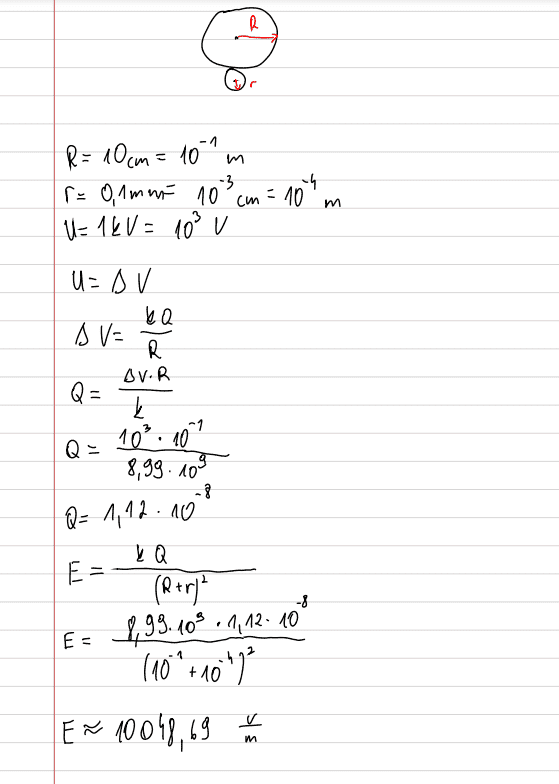 R
r
R = 10cm = 10⁻¹ m
r = 0,1mm = 10⁻³ cm = 10⁻⁴ m
U = 1kV = 10³ V
U = Δ V
Δ V = kQ / R
Q = ΔV·R / k
Q = 10³ · 10⁻¹ / 8,99 · 10⁹
Q = 1,12 · 10⁻⁸
E = k Q / (R+r)²
E = 8,99·10⁹ · 1,12·10⁻⁸ / (10⁻¹ + 10⁻⁴)²
E ≈ 10048,69 V/m